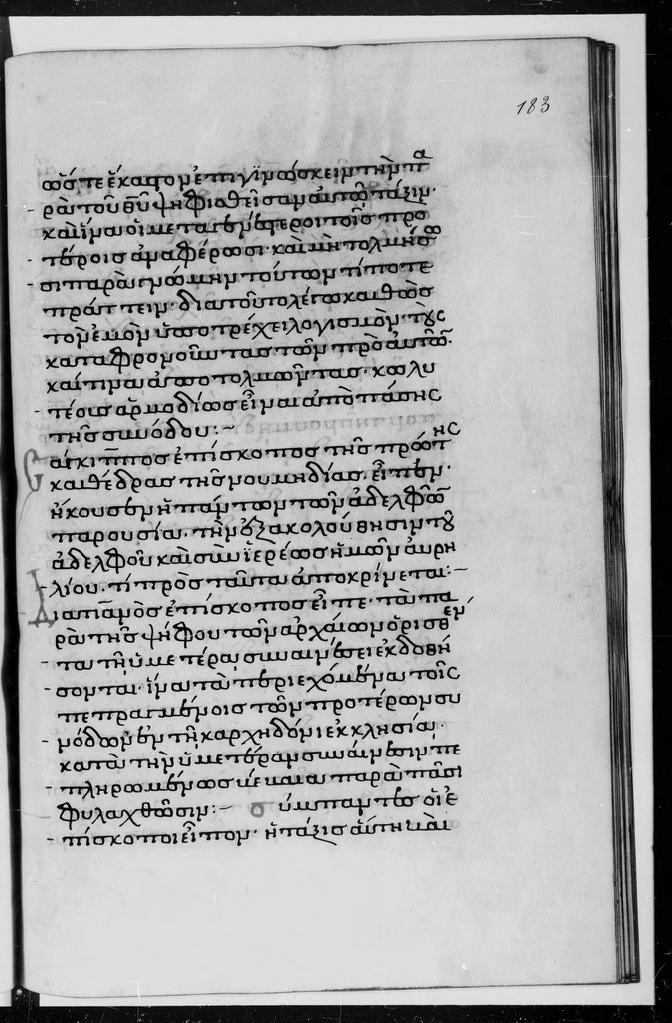 183
ὥστε ἕκαστον ἐπιγινώσκειν τὴν πα
ρὰ τοῦ θῦ ψηφισθεῖσαν αὐτῶ τάξιν·
καὶ ἵνα οἱ μεταγενέστεροι τοῖς προ
τέροις ἀναφέρωσι· καὶ μὴ τολμήσω
σι παρὰ γνώμην τούτων τί ποτε
πράττειν· διὰ τοῦτο λέγω καθὼς
τὸν ἐμὸν ὑποτρέχει λογισμὸν· τοὺς
καταφρονοῦντας τῶν πρὸ αὐτῶν·
καί τινα ἀποτολμῶντας· κωλυ
τέους ἁρμοδίως εἶναι ἀπὸ πάσης
τῆς συνόδου:~
ανκιππος ἐπίσκοπος τῆς πρώτης
καθέδρας τῆς νουμηδίας· εἶπεν·
ἤκουσεν ἡ πάντων τῶν ἀδελφῶν
παρουσία· τὴν ἐξακολούθησιν τοῦ
ἀδελφοῦ καὶ συνϊερέως ἡμῶν αυρη
λίου· τί πρὸς ταῦτα ἀποκρίνεται:~
Δατιανὸς ἐπίσκοπος εἶπε· τὰ πα
ρὰ τῆς ψήφου τῶν ἀρχαίων ὁρισθέν
τα τῆ ὑμετέρα συναινέσει ἐκδοθή
σονται· ἵνα τὰ περιεχόμενα τοῖς
πεπραγμένοις τῶν προτέρων συ
νόδων ἐν τῆ καρχηδόνι ἐκκλησία·
κατὰ τὴν ὑμετέραν συναίνεσιν πε
πληρωμένως καὶ παρὰ πᾶσι
φυλαχθῶσιν:~ σύμπαντες οἱ ἐ
πίσκοποι εἶπον· ἡ τάξις αὕτη καὶ